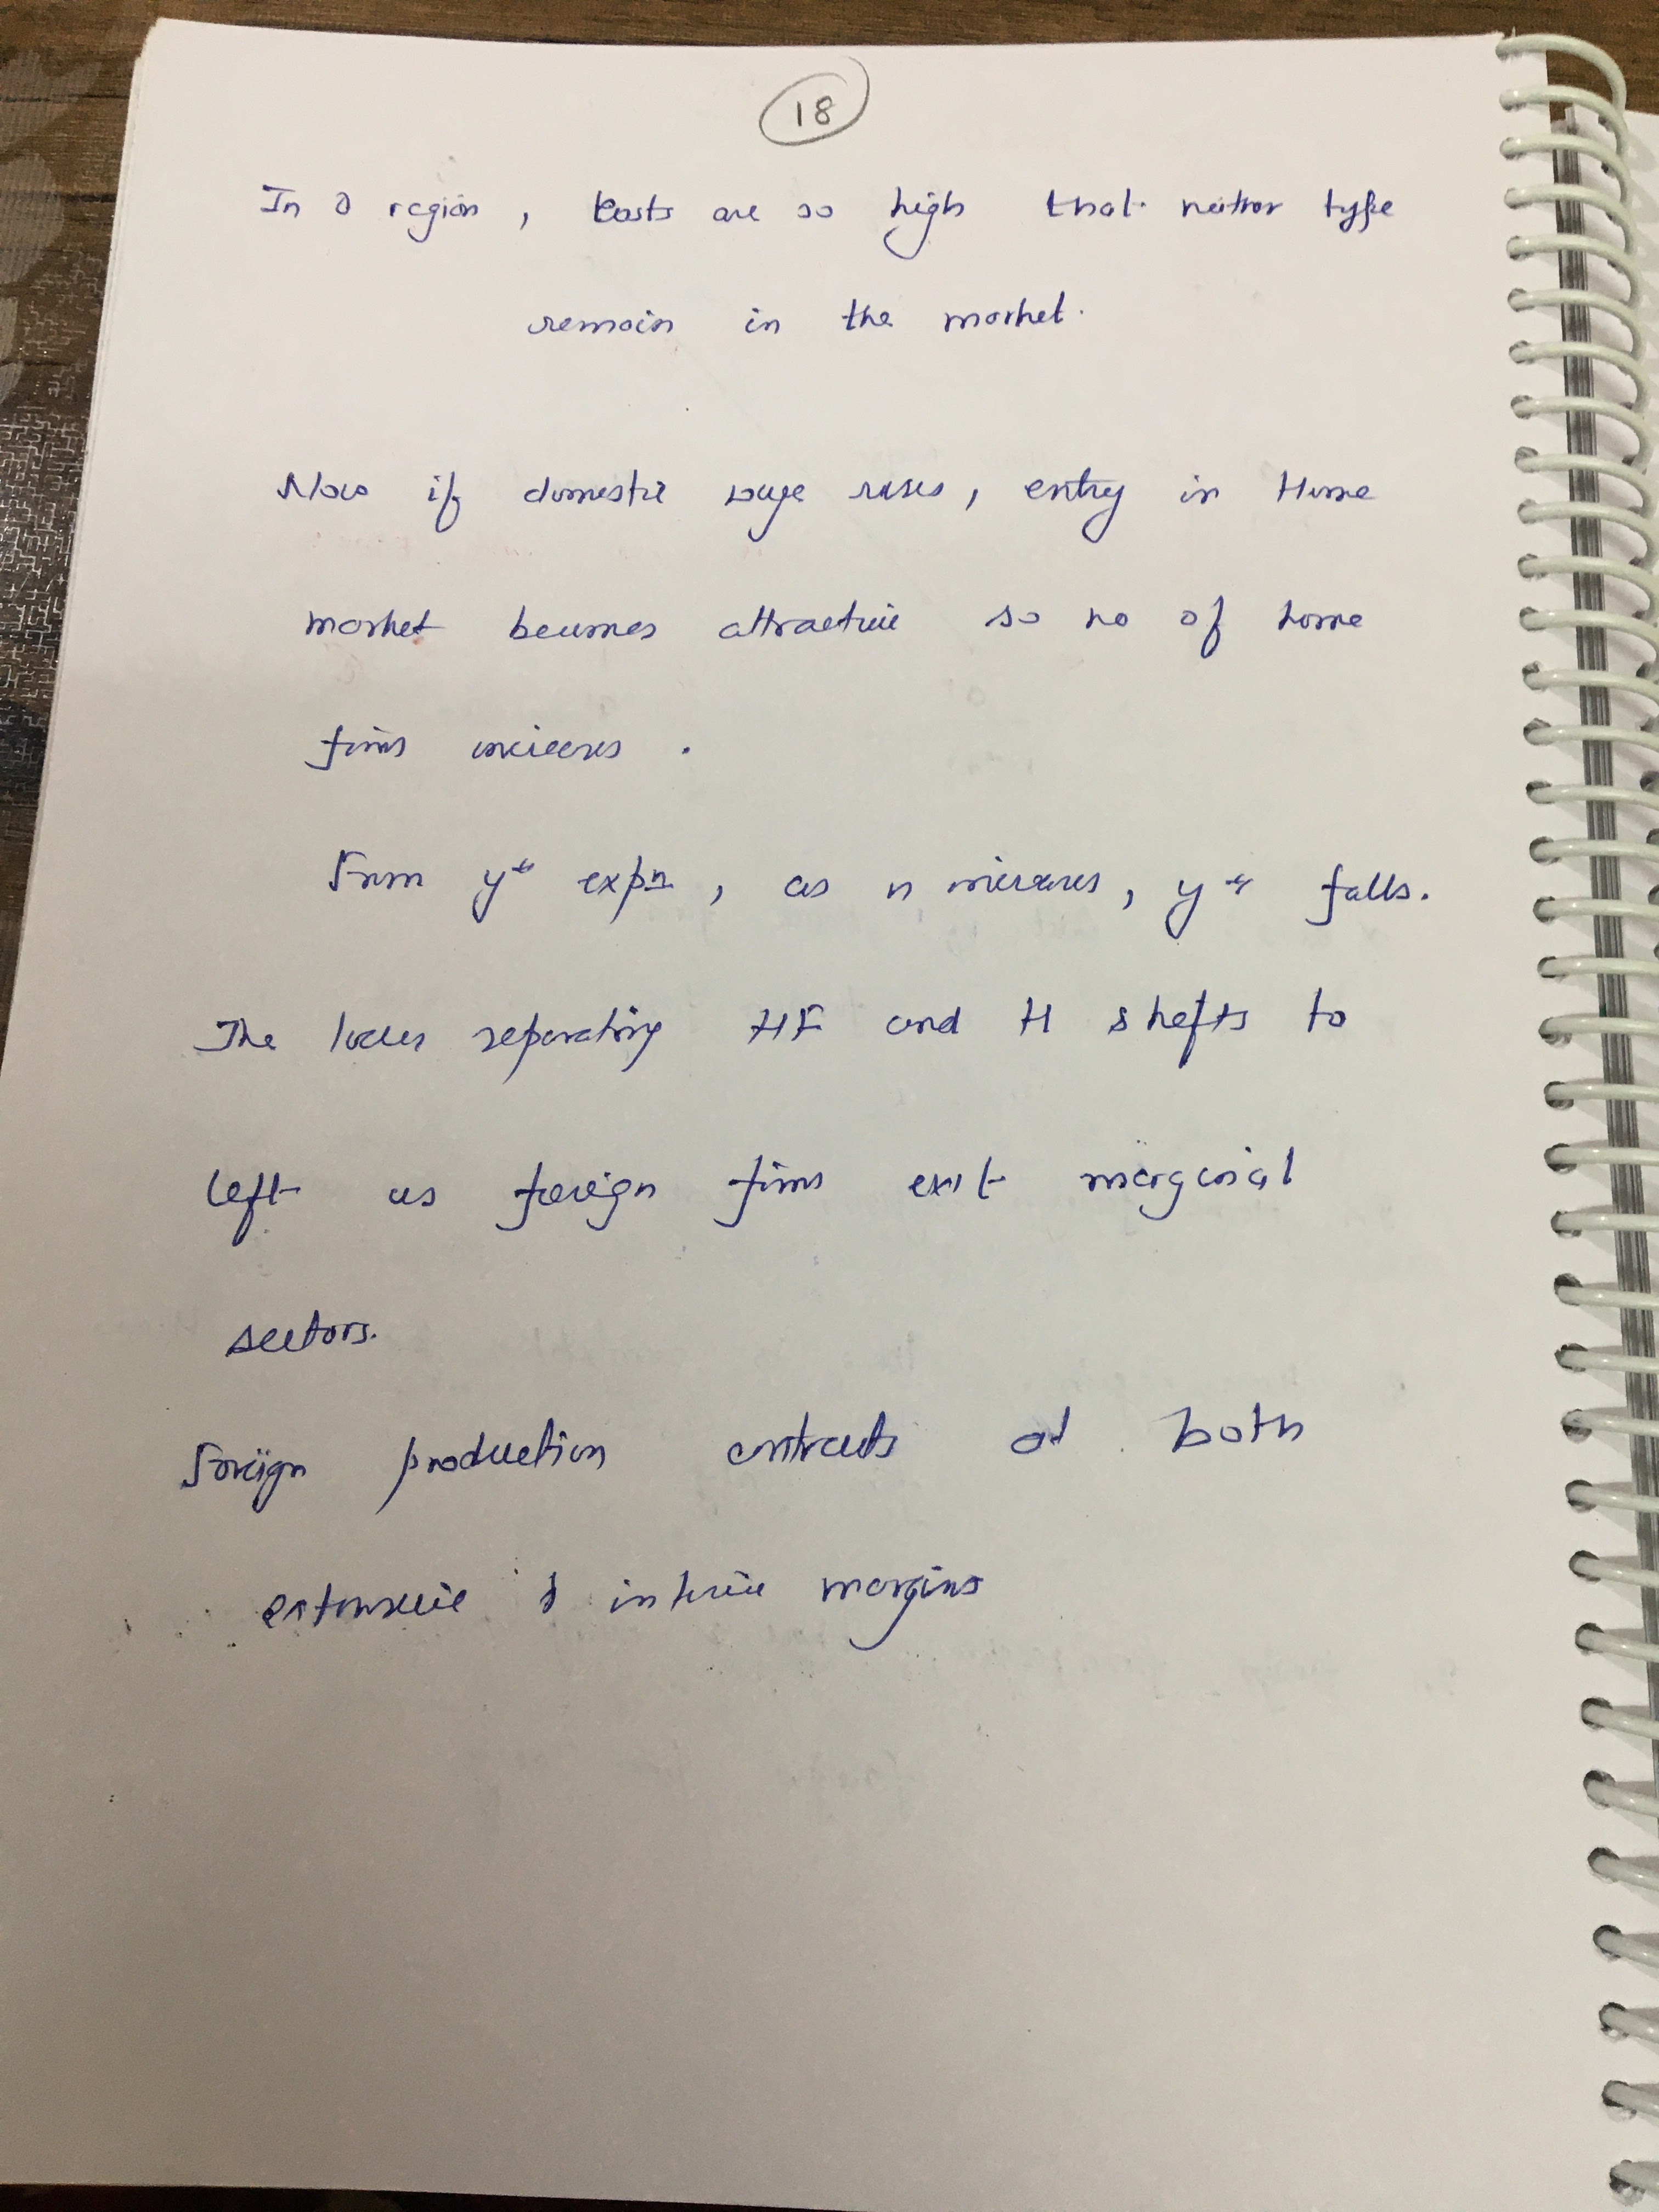 18
In O region, costs are so high that neither type
remain in the market.
Now if domestic wage rises, entry in Home
market becomes attractive so no of home
firms increases.
From y* expn, as n increases, y* falls.
The locus separating HF and H shifts to
left as foreign firms exit marginal
sectors.
Foreign production contracts at both
extensive & intensive margins